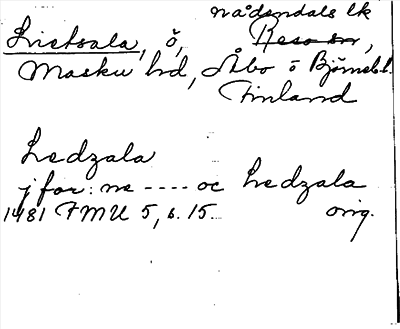 Nådendals lk
Lietsala, ö, Reso sn,
Masku hd, Åbo o Björneb. l.
Finland
Ledzala
jfor: ne ---- oc Ledzala
1481 FMU 5, s. 15. orig.